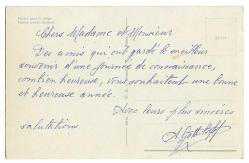 Chers Madame et Monsieur
Des amis qui ont gardé le meilleur
souvenir d'une journée de connaissance,
combien heureuse, vous souhaitent une bonne
et heureuse année.
Avec leurs plus sincères
salutations